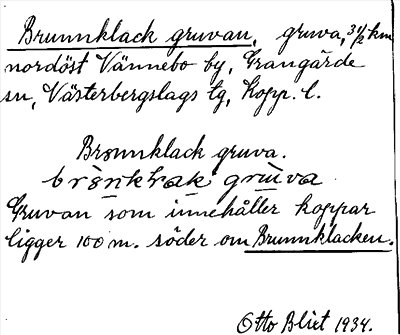 Brunnklack gruvan, gruva, 3 1/2 km
nordöst Vännebo by, Grangärde
sn, Västerbergslags tg, Kopp. l.
Brunnklack gruva.
gruva
Gruvan som innehåller koppar
ligger 100 m. söder om Brunnklacken.
Otto Blixt 1934.